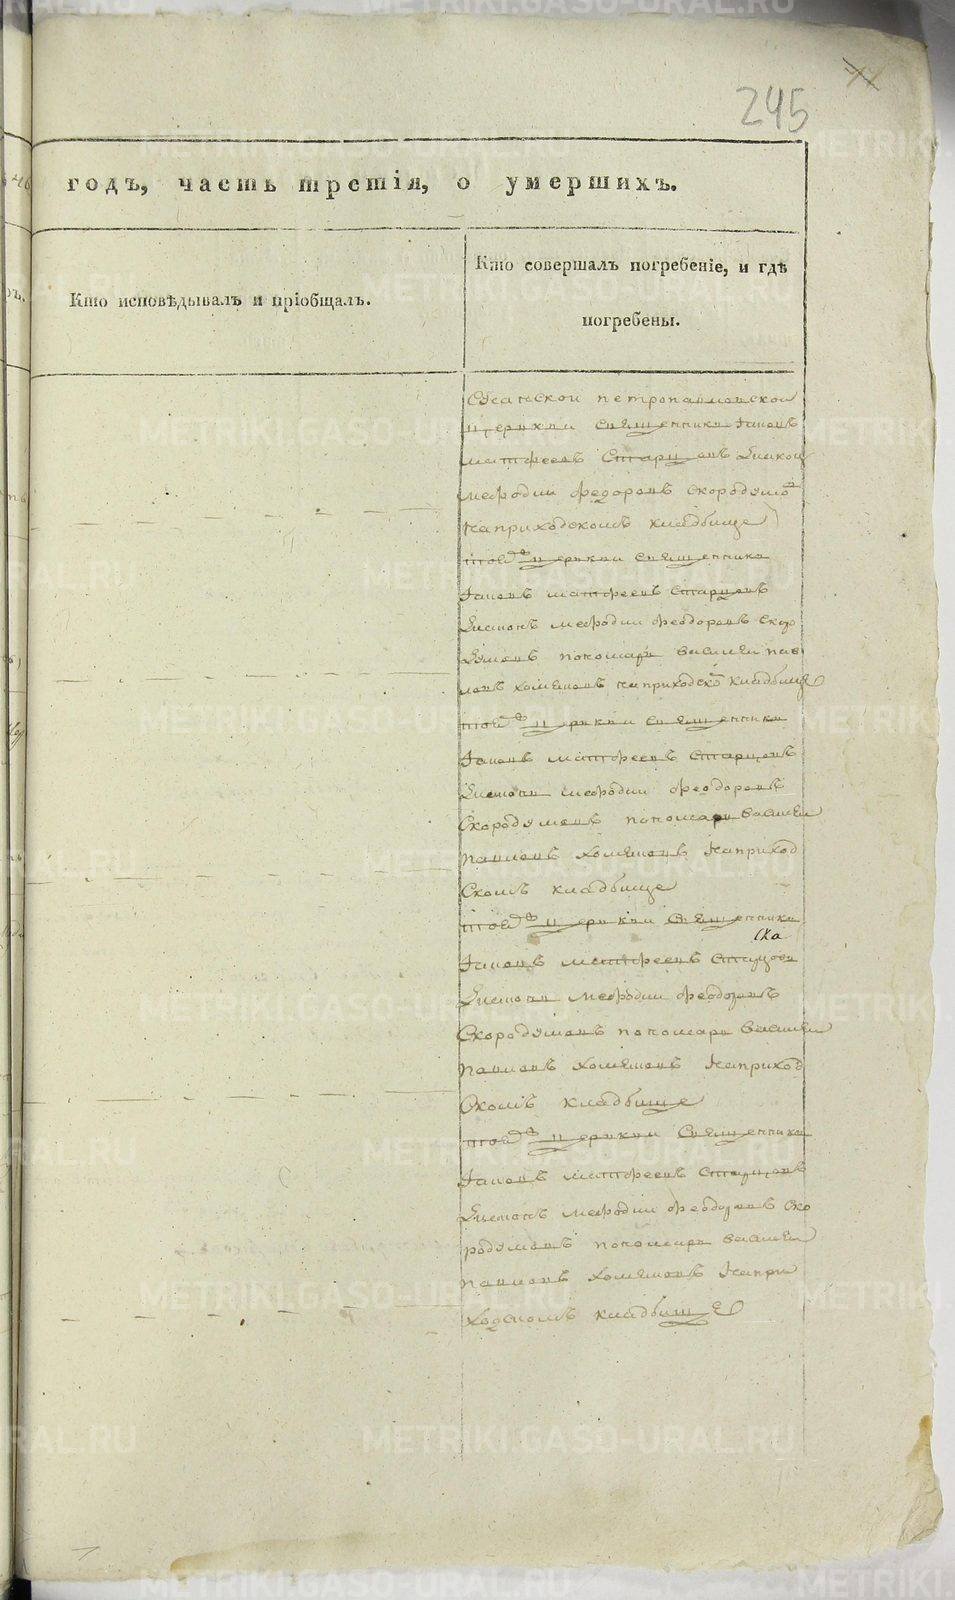 245
годъ, часть третія, о умершихъ.
Кто исповѣдывалъ и пріобщалъ.
Кто совершалъ погребеніе, и гдѣ
погребены.
петропавловской
церькви священникъ Іаковъ
матфеевъ Старцовъ Диакон
мефодии федоровъ Скородумо
на приходскомъ кладбище
тоей церькви священникъ
Іаковъ матфеевъ Старцовъ
Диаконъ мефодии феодоровъ Ско
думовъ пономарь василеи пав
ловъ холемовъ на приходско кладбище
тоей церькви священникъ
Іаковъ матфеевъ Старцовъ
Диаконъ мефодии феодоровъ
Скородумовъ пономарь василеи
павловъ холемовъ на приход
скомъ кладбище
тоей церькви Священникъ
Іаковъ матфеевъ
Диаконъ мефодии феодоровъ
Скородумовъ пономарь василеи
павловъ холемовъ на приход
скомъ кладбище
тоей церькви Священникъ
Іаковъ матфеевъ Старцовъ
Диаконъ мефодии феодоровъ Ско
родумовъ пономарь василеи
павловъ холемовъ на при
ходскомъ кладбище
METRIKI.GASO-URAL.RU